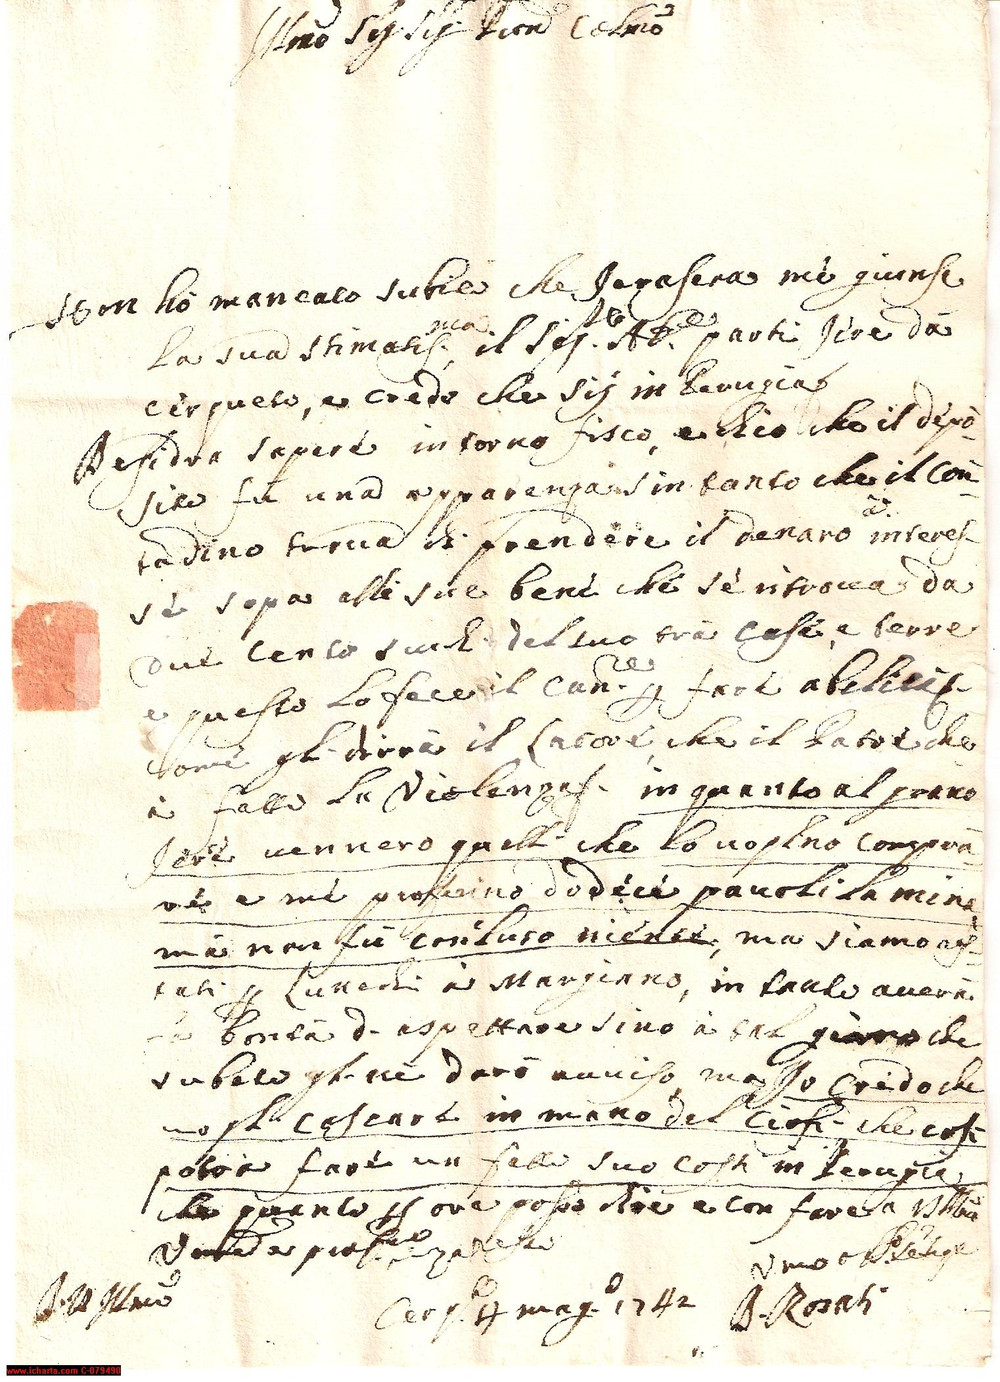 Illmo Sig Sig Pron Colmo
Non hò mancato subito che Jeraséra mè giunse
la sua stimatis.ma il Sig.re Ab.e partì Jere da
cerqueto, e credo che sij in Perugia
Desidra saperé intorno fisco, e dico che il depò-
sito fù una apparenza sin tanto che il con-
tadino trova di prendére il denaro à interes-
sé sopa alli sue bené che sé ritrova da
dué cento scudi del suo trà casé, e terre
e questo lo fece il can.re p faré
comé gli dirrà il Latoré, che il Latoré che
à fatto la Violenza. in quanto al grano
Jeré vennero quelli che lo voglino comprà
ré e mé proferino dodécé pauoli la mina
mà non fù concluso niénté, ma siamo
p Lunedi à Marziano, in tanto auerà
la bontà di aspettare sino à tal giorno che
subeto gli né darò auuiso, ma Jo crédo che
vogli cascaré in mano del che cosi
potrà faré un fatto suo costì in Perugia
che quanto p ora posso dire e con fare a V S Illma
Cerq.o 4 mag.o 1742
V S Illmo
B. Rosati
www.icharta.com C-079490